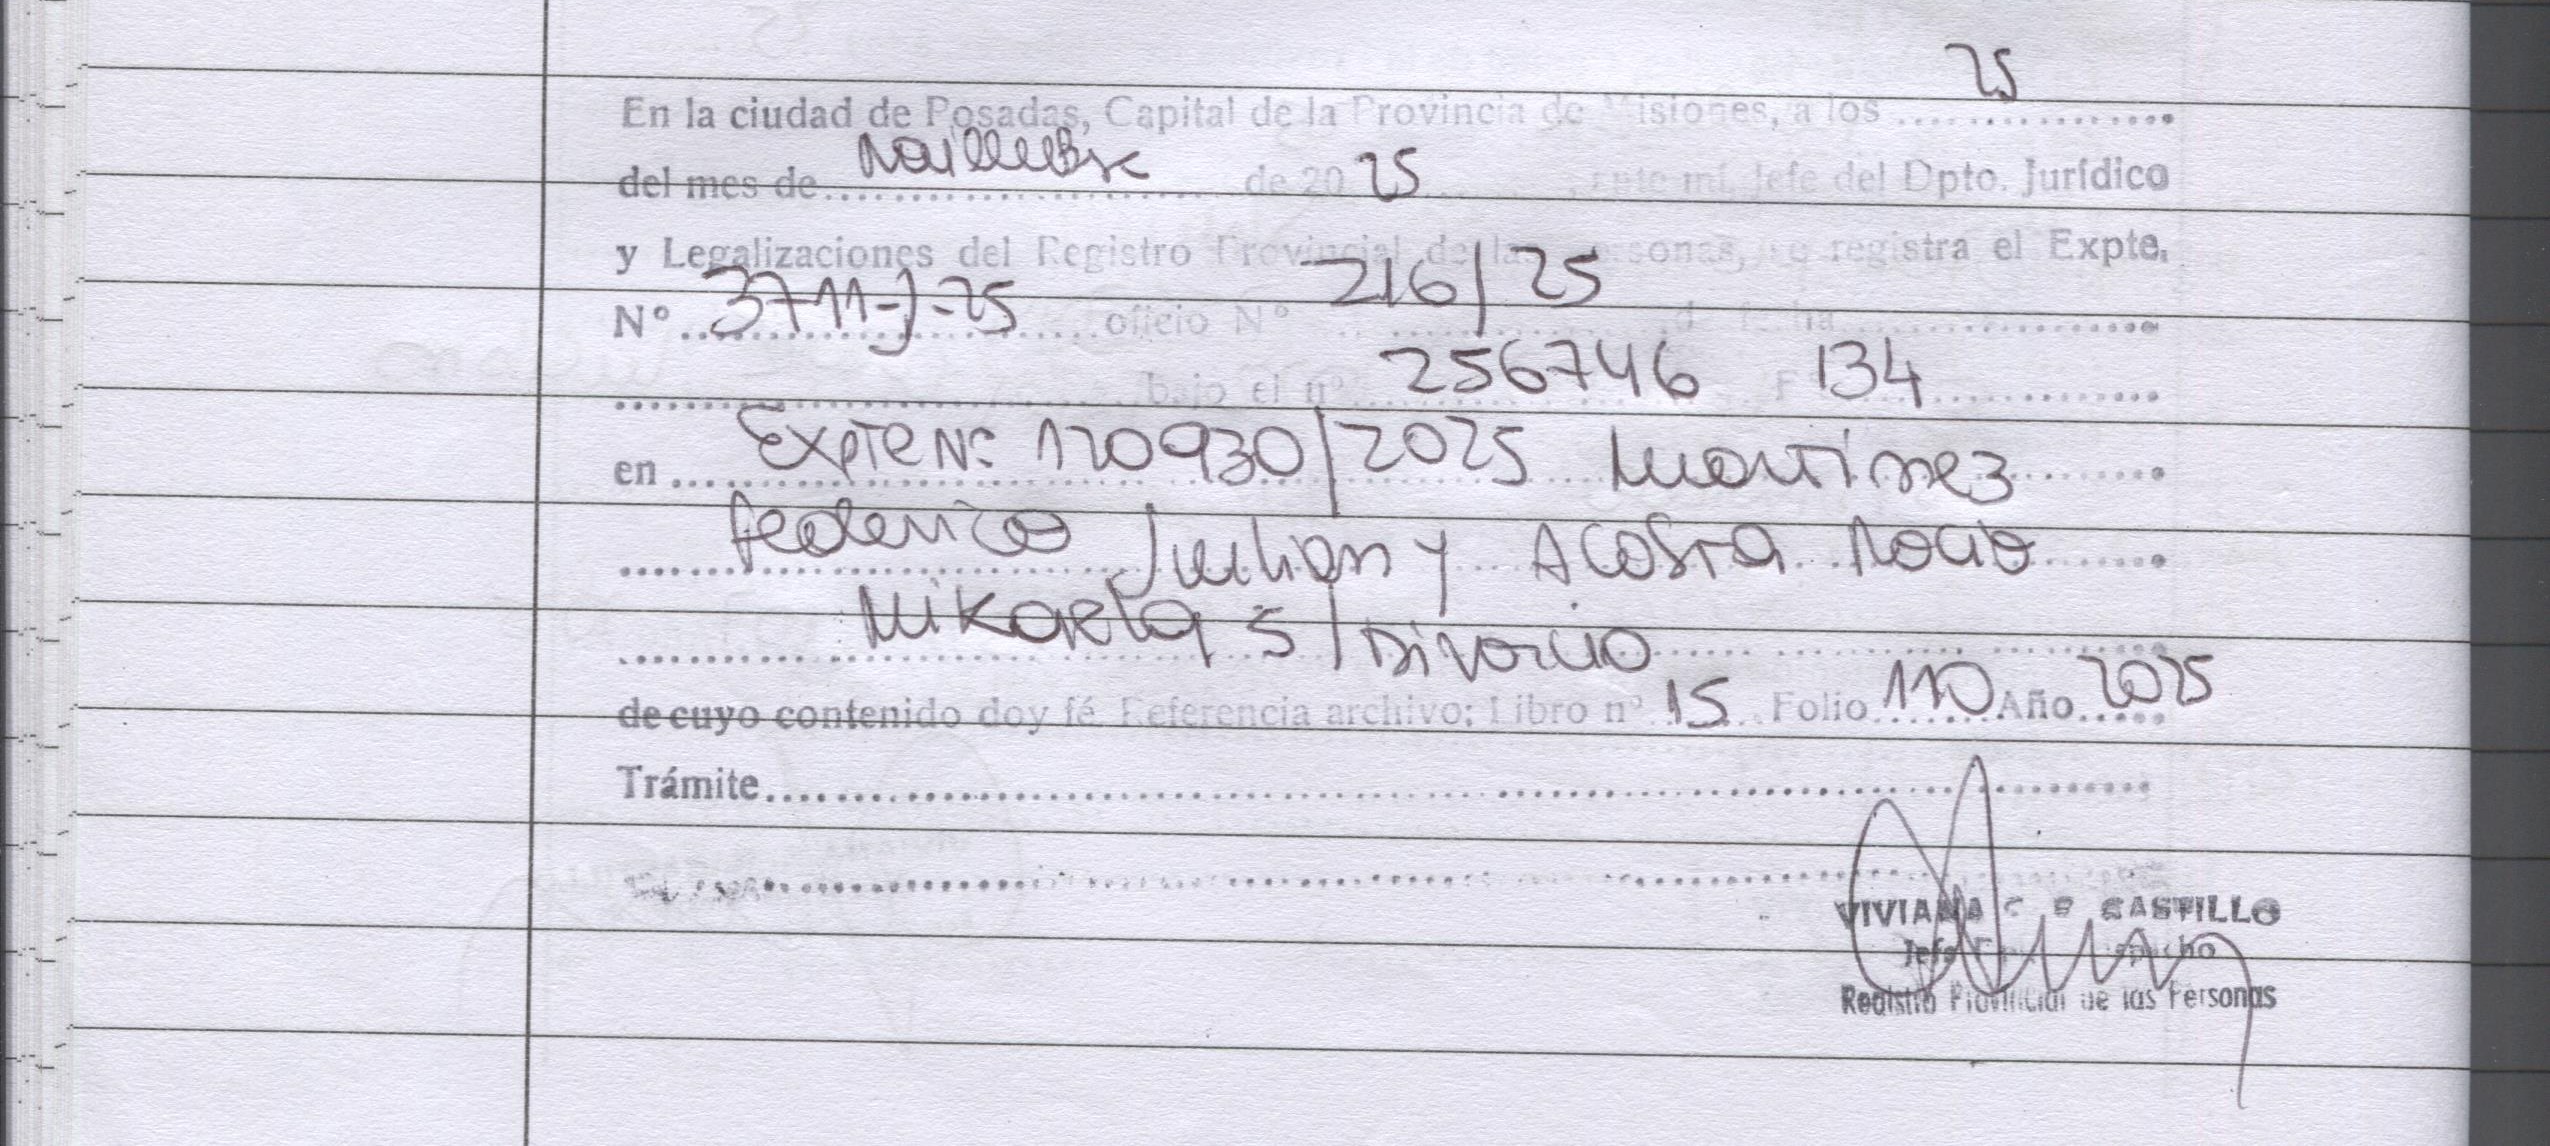 En la ciudad de Posadas, Capital de la Provincia de Misiones, a los 25
del mes de Noviembre de 2025, ante mí, Jefe del Dpto. Jurídico
y Legalizaciones del Registro Provincial de las Personas, se registra el Expte.
Nº 3711-J-25 oficio Nº 216/25 de fecha
bajo el nº 256746 F 134
en Expte Nº 120930/2025 Martinez
Federico Julian y Acosta Rocio
Mikaela S/Divorcio
de cuyo contenido doy fé. Referencia archivo: Libro nº 15 Folio 110 Año 2025
Trámite
VIVIANA CASTILLO
Jefe
Registro Provincial de las Personas